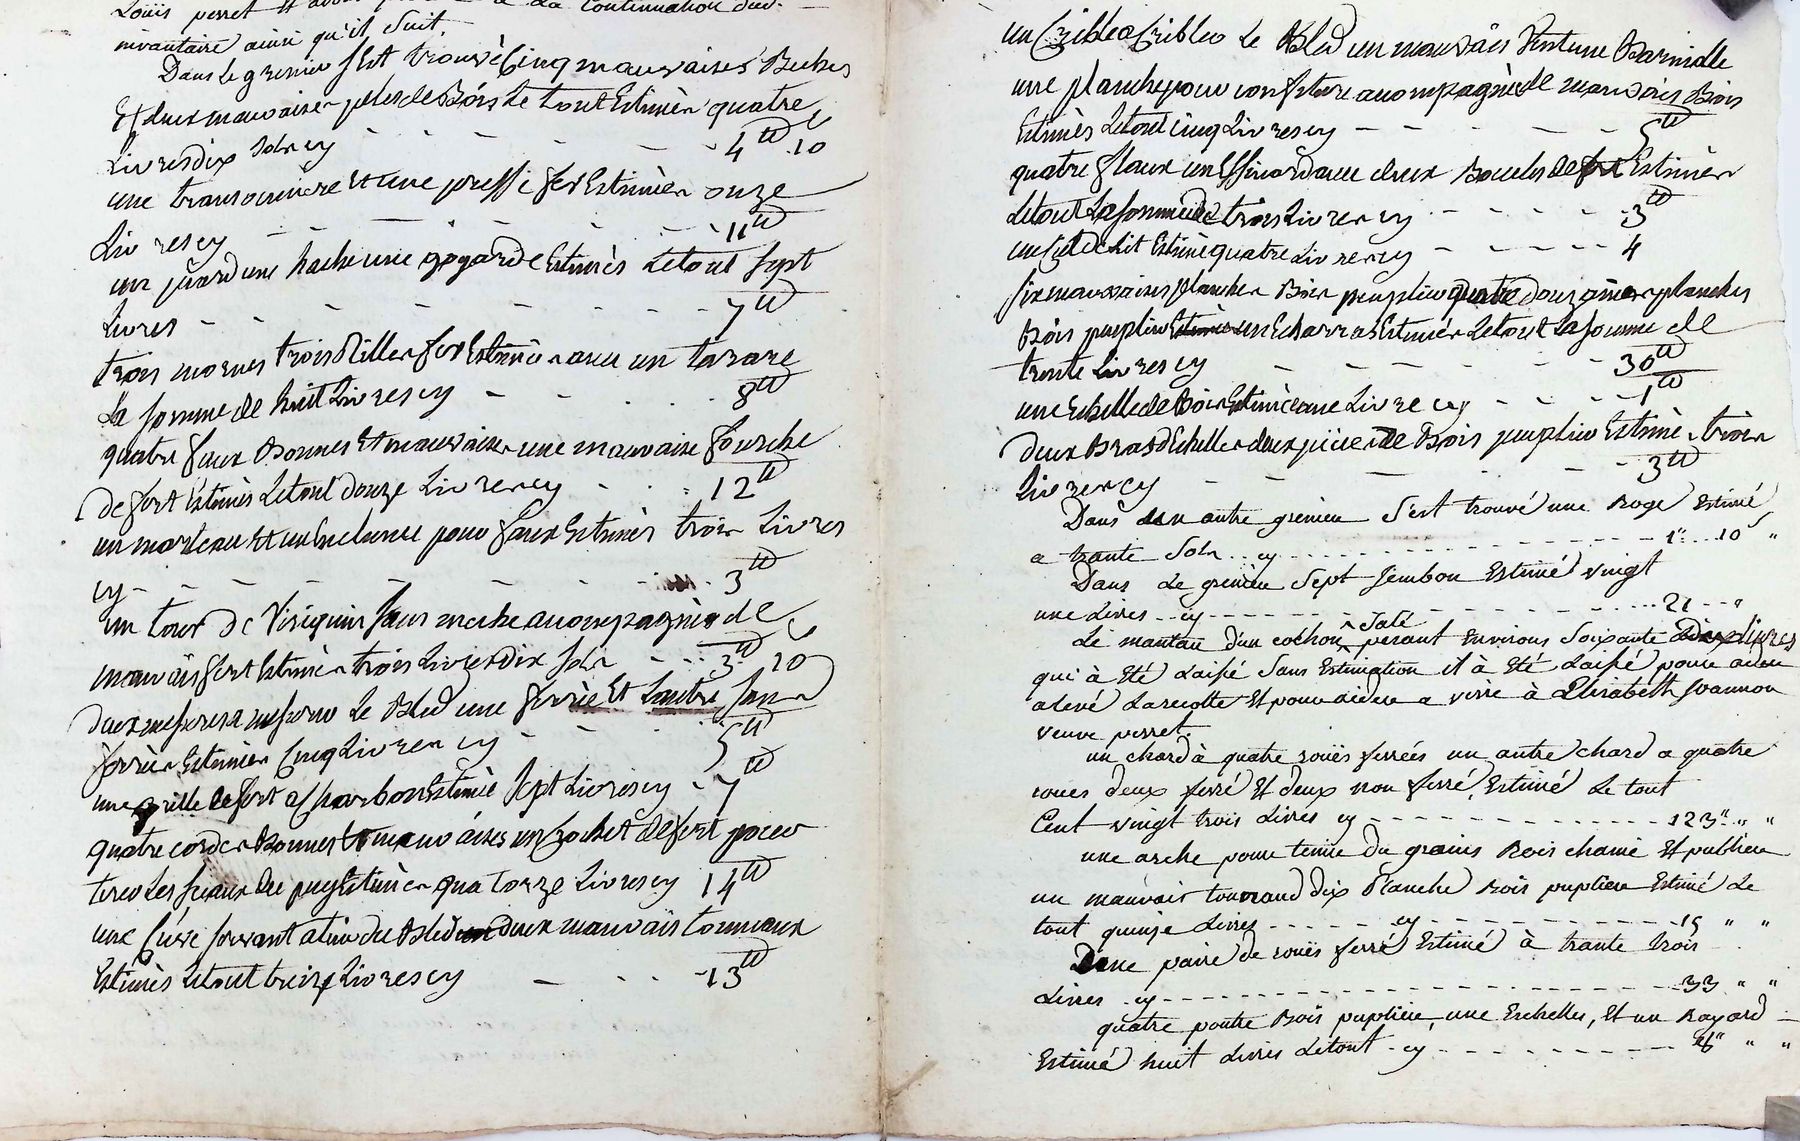 Louïs perret Et avons à La Continuation dud.
invantaire ainsi qu'il Suit,
Dans Le grenier sest trouvé Cinq mauvaises Beches
Et deux mauvaises peles de Bois Le tout Estimés quatre
Livres dix Sols cy - - - - - 4tt 10
une Et une presse fer Estimée onze
Livres cy - - - - - 11tt
un une hache une gogarde Estimés Letout sept
Livres - - - - - 7tt
trois mornes trois fer Estimés avec un tarare
La somme de huit Livres cy - - - - 8tt
quatre faux Bonnes Et mauvaises une mauvaise fourche
de fert Estimés Letout douze Livres cy - - - 12tt
un marteau Et un enclume pour faux Estimés trois Livres
cy - - - - - 3tt
un tour De sans meche acompagné de
mauvais fert Estimés trois Livres dix sols - - - 3tt 10
deux mesures a mesurer Le Bled une ferrée Et Lautre sans
ferrée Estimées Cinq Livres cy - - - 5tt
une grille de fert a charbon Estimée sept Livres cy - 7tt
quatre cordes Bonnes Et mauvaises un Crochet de fert pour
tirer Les seaux du puy Estimés quatorze Livres cy 14tt
une servant a du Bled deux mauvais tonneaux
Estimés Letout treize Livres cy - - - - 13tt
un Crible a Cribler Le Bled un mauvais
une planche pour confiture acompagnée de mauvais Bois
Estimés Letout cinq Livres cy - - - - - 5tt
quatre flaux un avec deux Boucles de fert Estimés
Letout La somme de trois Livres cy - - - - 3tt
un Ciel de Lit Estimé quatre Livres cy - - - - - 4
six mauvaises planches Bois peuplier quatre douzaines planches
Bois peuplier un Estimés Letout La somme de
trente Livres cy - - - - - - 30tt
une Echelle de Bois Estimée une Livre cy - - - - 1tt
deux Bras dEchelles deux pièces de Bois peuplier Estimés trois
Livres cy - - - - - 3tt
Dans un autre grenier Sest trouvé une Roge Estimé
a trante Sols .. cy - - - - - - - - 1" .. 10 "
Dans Le grenier Sept Jembon Estimé vingt
une Livres .. cy - - - - - - - - 21 - - "
Le mantau d'un cochon salé pesant Environs Soixante Livres
qui à Eté Laissé Sans Estimation il à Eté Laissé pour aider
a levé La recolte Et pour aider a vivre à Elizabeth Joannon
veuve perret.
un chard à quatre rouës ferrées un autre chard a quatre
roues deux ferré Et deux non ferré, Estimé Le tout
Cent vingt trois Livres cy - - - - - - - - 123" " "
une arche pour tenir du grains Bois chaine Et publier
un mauvais dix Planche Bois puplier Estimé Le
tout quinze Livres - - - - - cy - - - - - - 15 " "
une paire de rouës ferré Estimé à trante trois
Livres - cy - - - - - - - - - - 33 " "
quatre poutre Bois puplier, une Echelles, Et un Rayard
Estimé huit Livres Letout - cy - - - - - - - - 8" " "